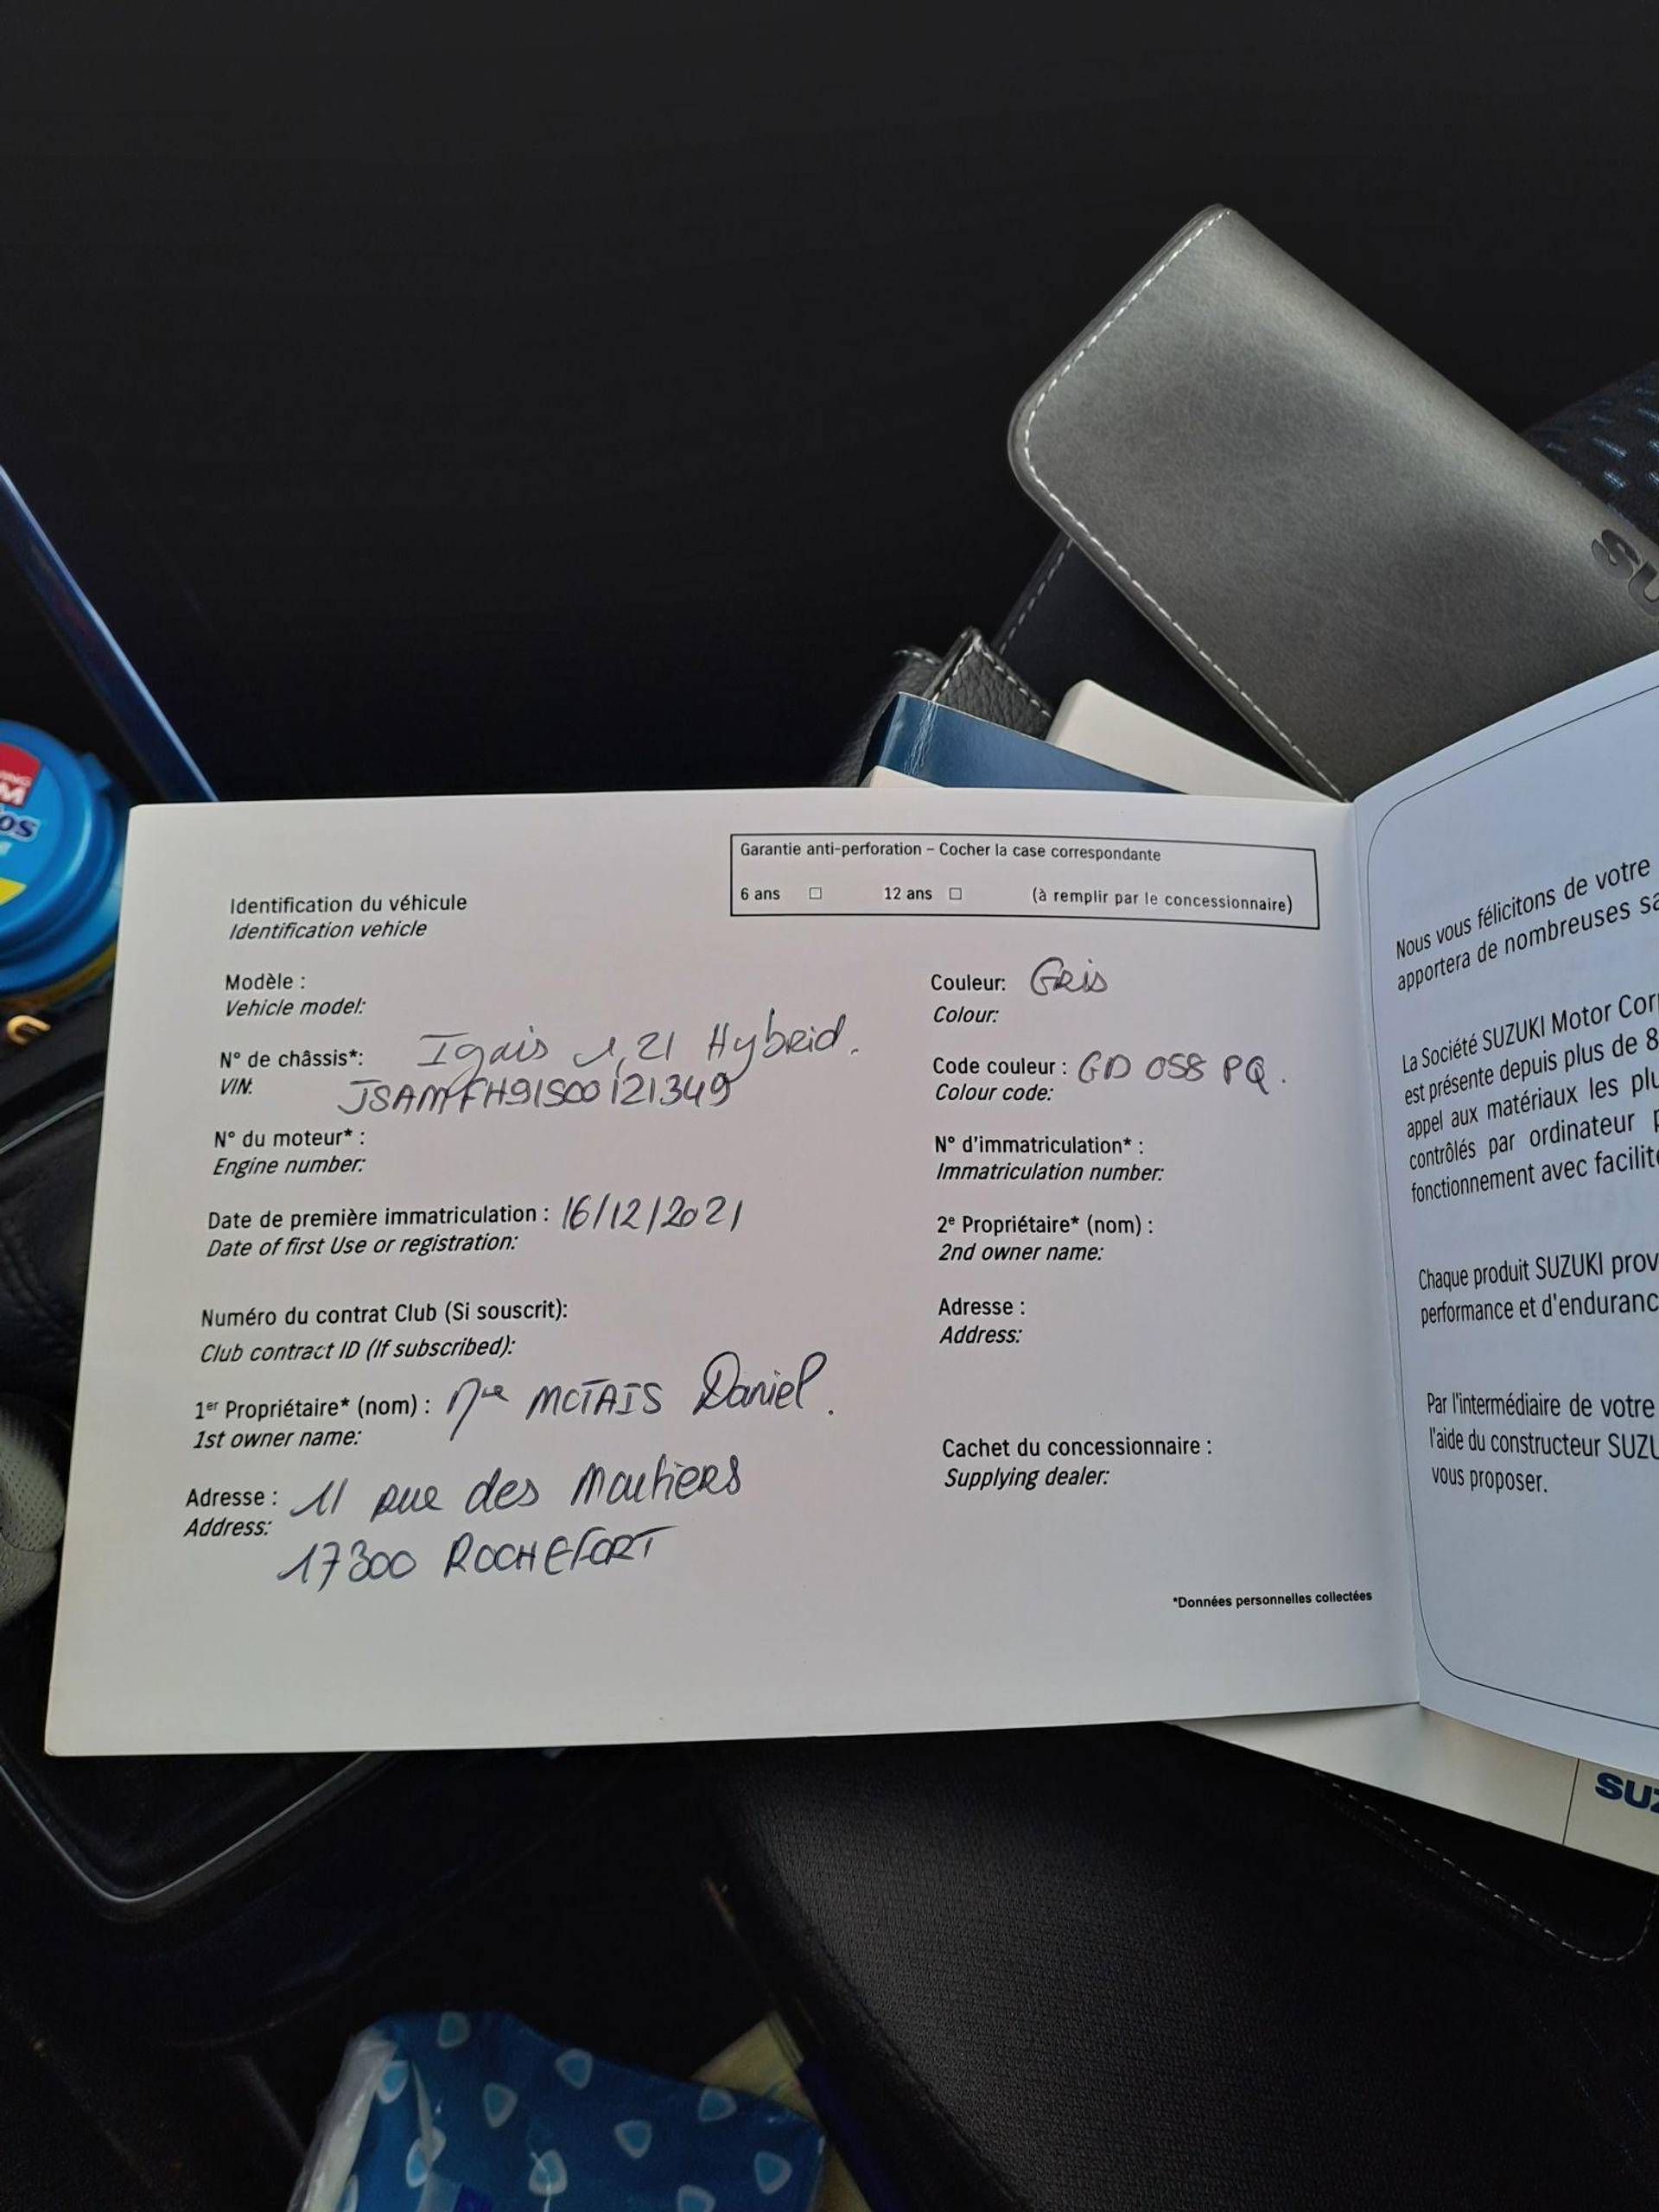 Garantie anti-perforation – Cocher la case correspondante
6 ans □ 12 ans □ (à remplir par le concessionnaire)
Identification du véhicule
Identification vehicle
Modèle :
Vehicle model:
Igais 1,21 Hybrid.
N° de châssis*:
VIN:
JSAMFH91S00121349
N° du moteur* :
Engine number:
Date de première immatriculation : 16/12/2021
Date of first Use or registration:
Numéro du contrat Club (Si souscrit):
Club contract ID (If subscribed):
1er Propriétaire* (nom) : MCTAIS Daniel.
1st owner name:
Adresse : 11 rue des
Address:
17300 ROCHEFORT
Couleur: Gris
Colour:
Code couleur : GD 058 PQ.
Colour code:
N° d'immatriculation* :
Immatriculation number:
2e Propriétaire* (nom) :
2nd owner name:
Adresse :
Address:
Cachet du concessionnaire :
Supplying dealer:
*Données personnelles collectées
Nous vous félicitons de votre
apportera de nombreuses sa
La Société SUZUKI Motor Cor
est présente depuis plus de 8
appel aux matériaux les plu
contrôlés par ordinateur
fonctionnement avec facilité
Chaque produit SUZUKI prov
performance et d'enduranc
Par l'intermédiaire de votre
l'aide du constructeur SUZU
vous proposer.
SU
SUZ